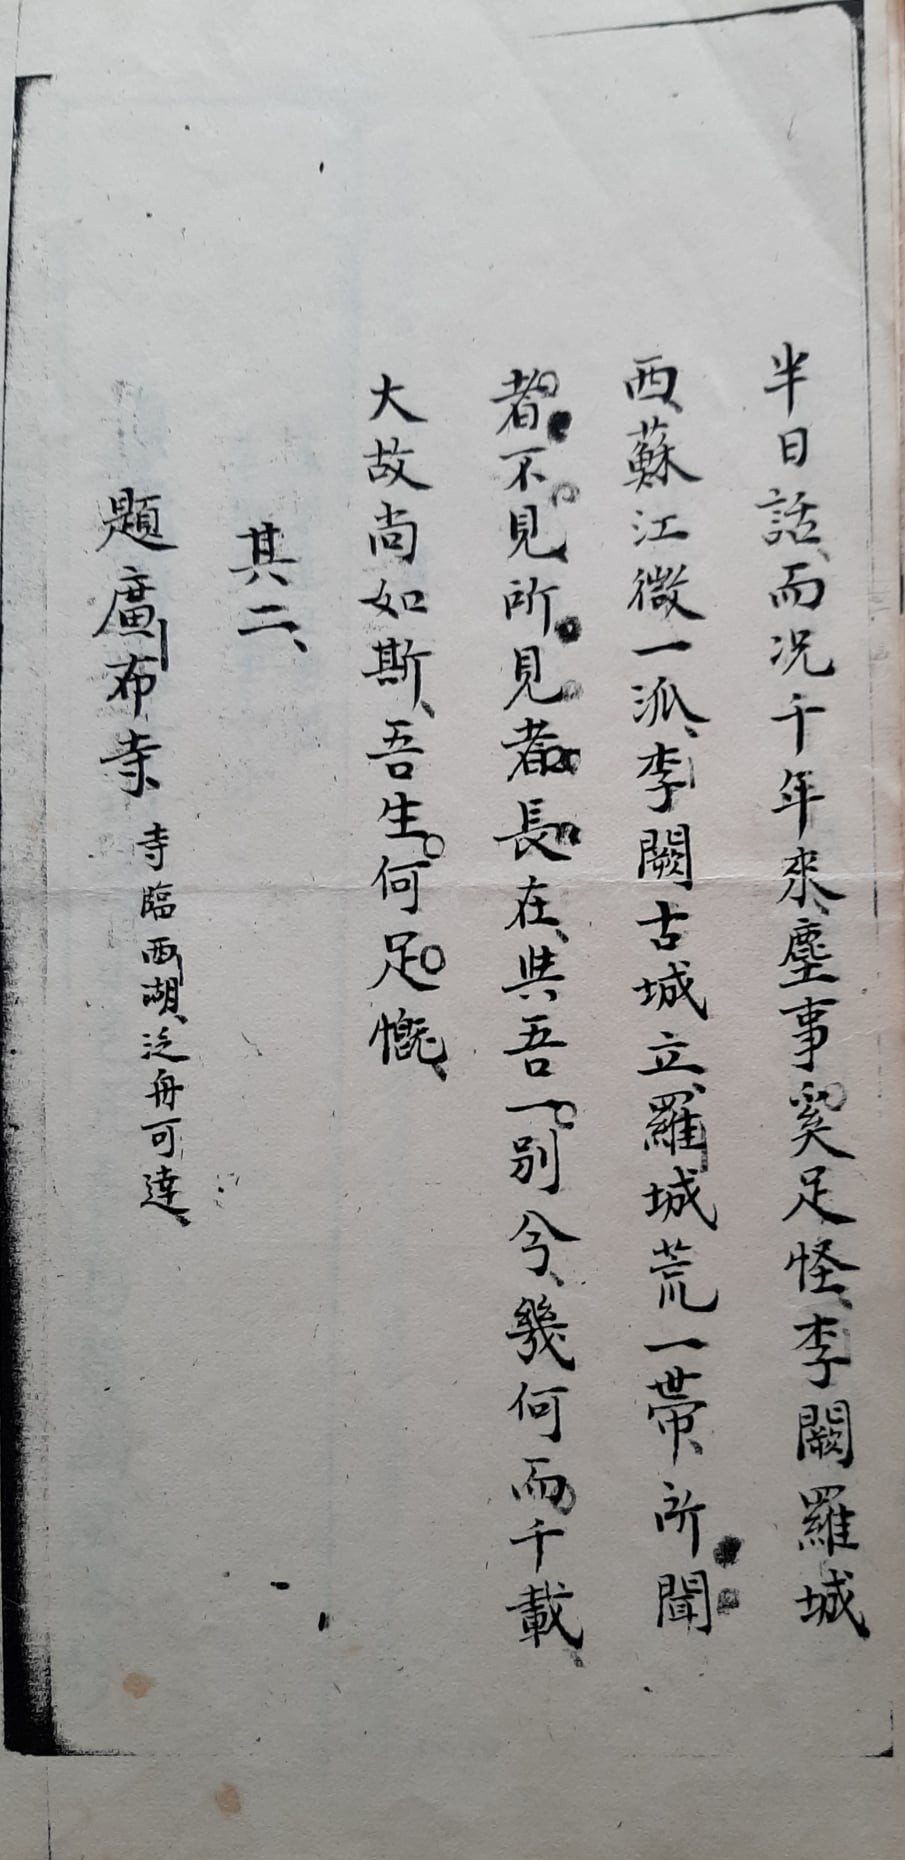 半日話而况千年來塵事奚足怪李闕羅城
西蘇江微一派李闕古城立羅城荒一帶所聞
者不見所見者長在與吾一別今幾何而千載
大故尚如斯吾生何足慨
其二
題廣布寺 寺臨西湖泛舟可達